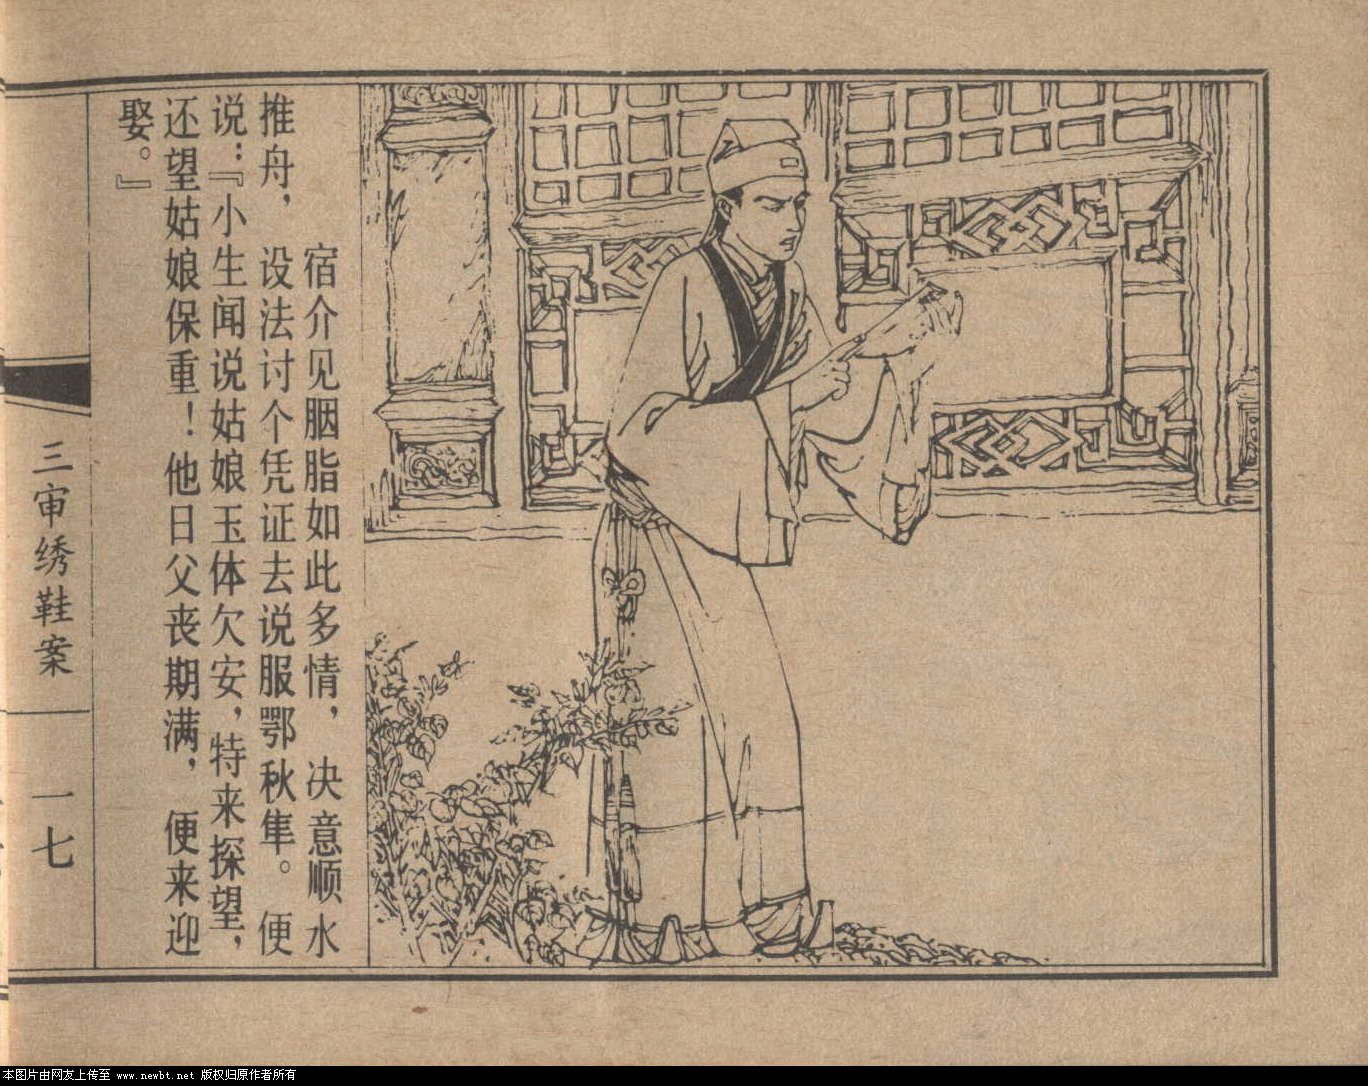 宿介见胭脂如此多情，决意顺水
推舟，设法讨个凭证去说服鄂秋隼。便
说：『小生闻说姑娘玉体欠安，特来探望，
还望姑娘保重！他日父丧期满，便来迎
娶。』
三审绣鞋案
一七
本图片由网友上传至 www.newbt.net 版权归原作者所有